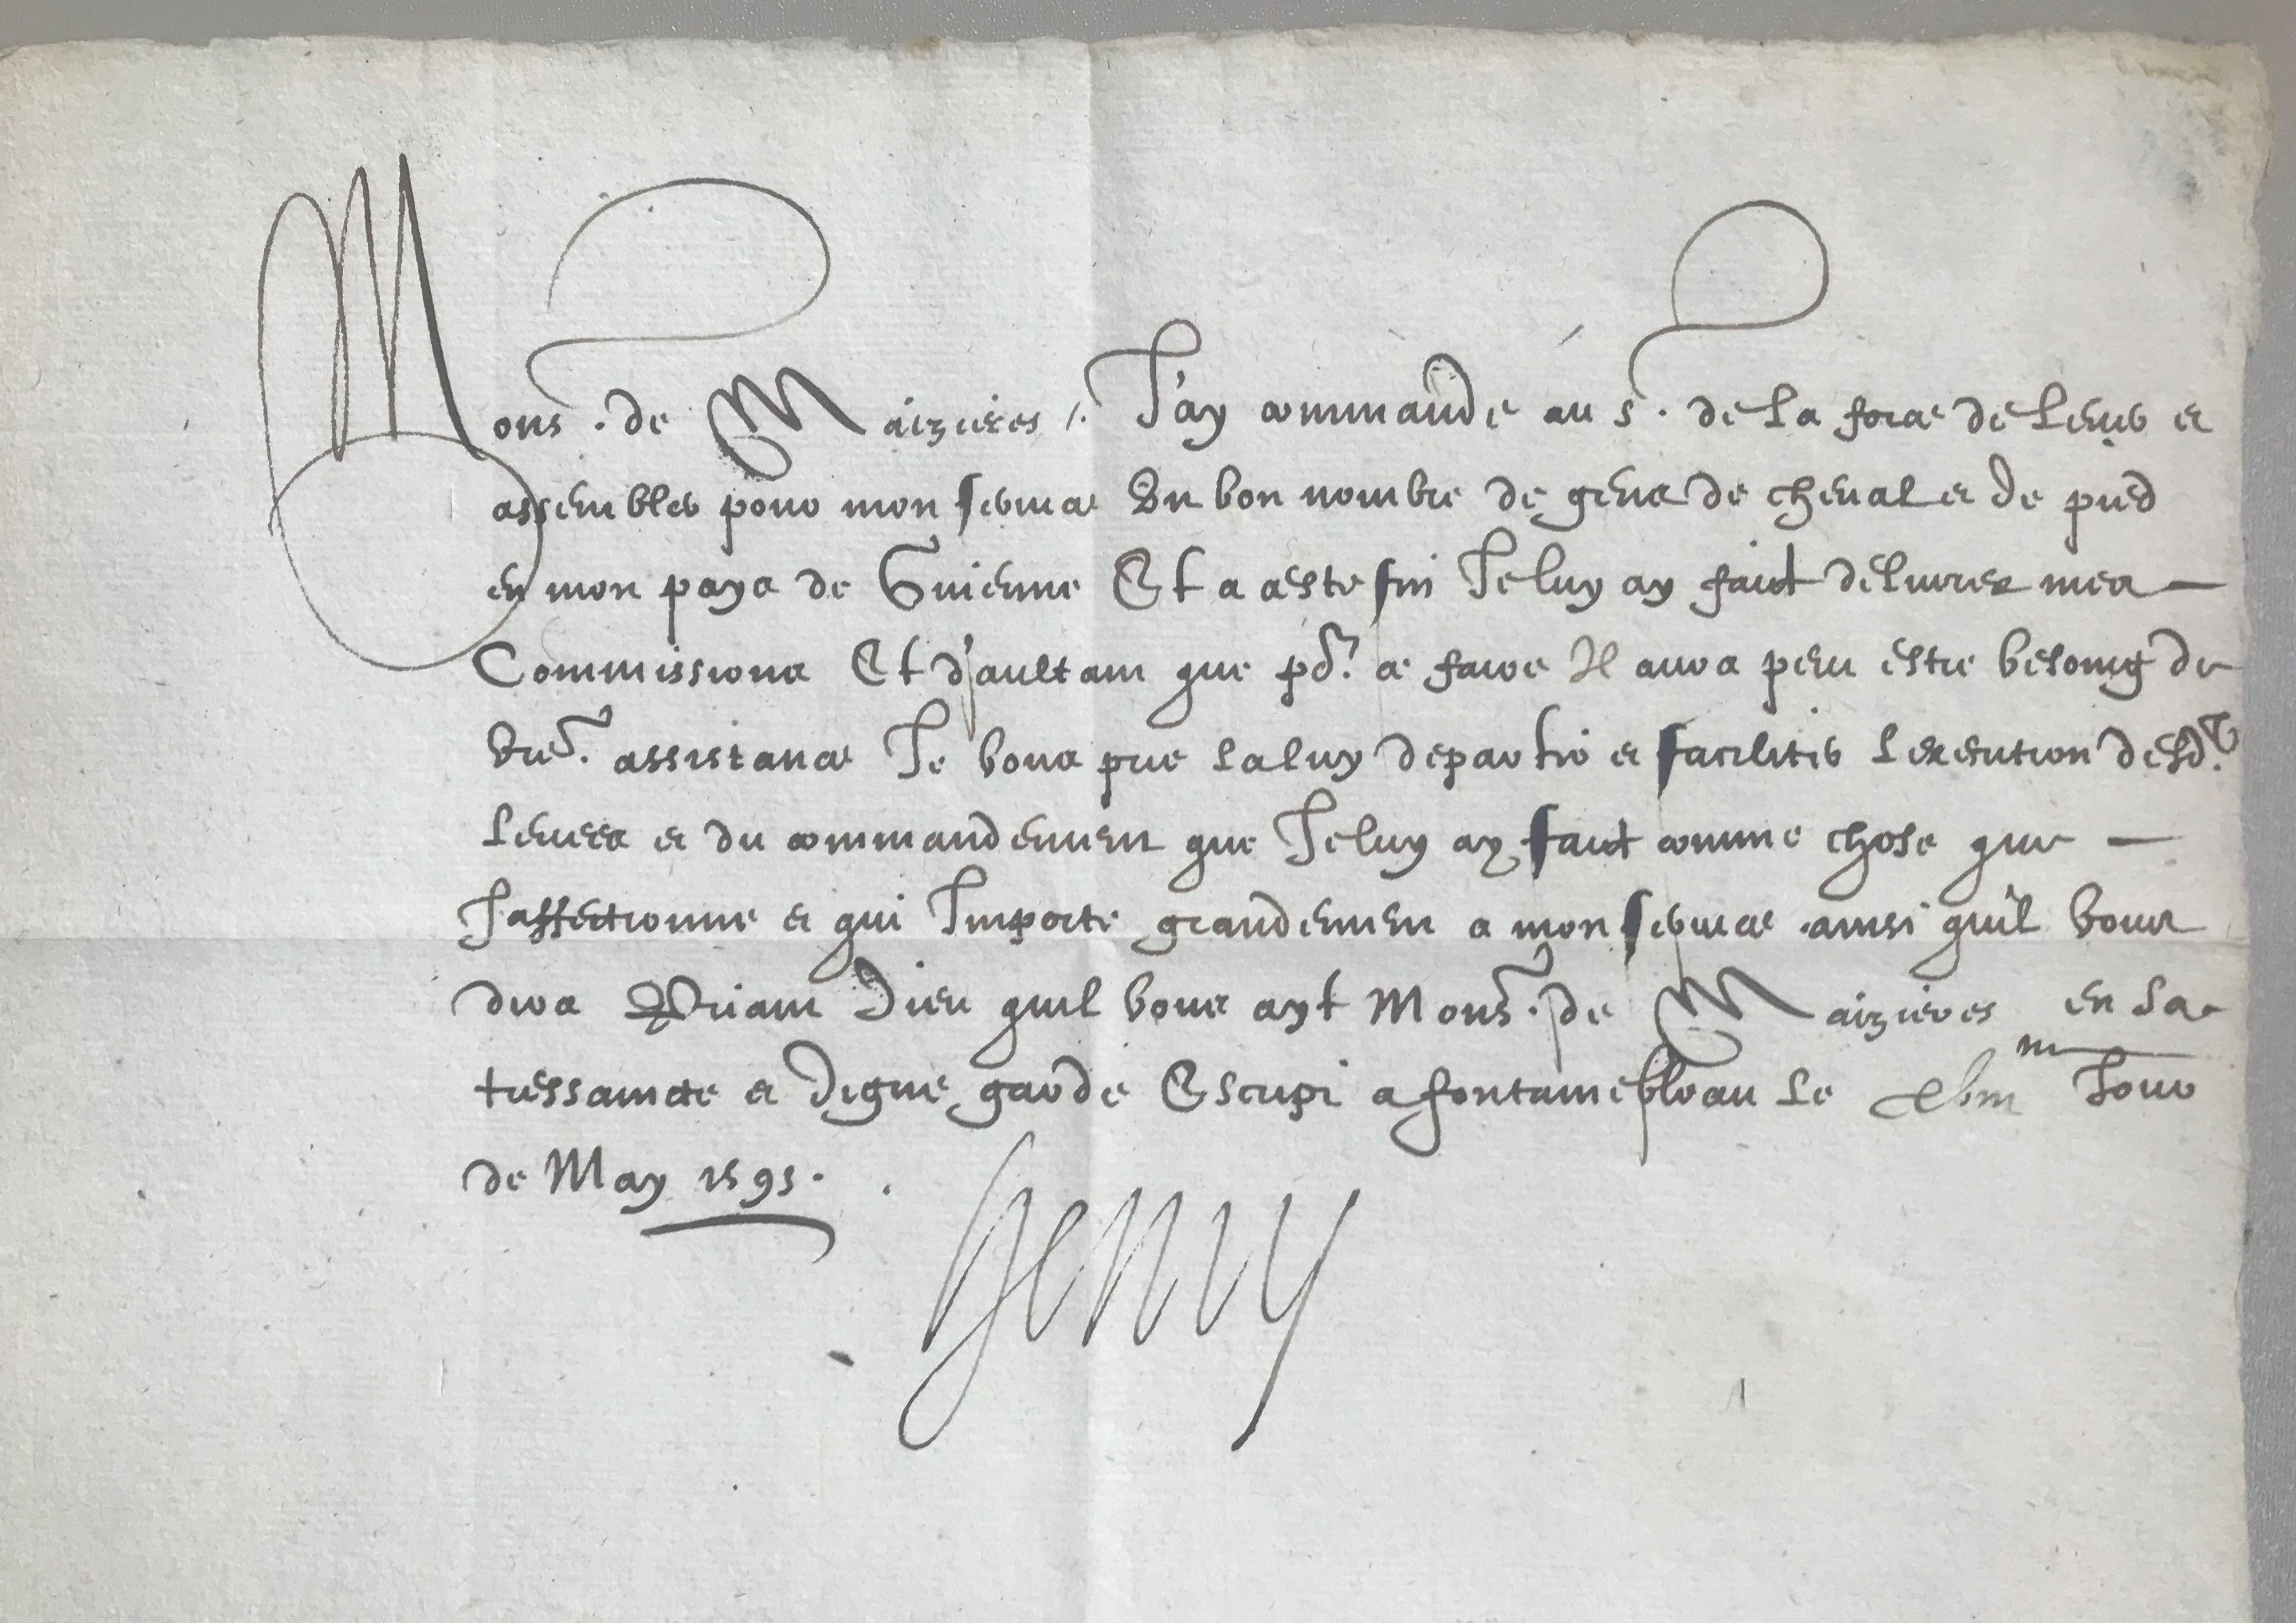 Mons.r de Maizieres /. J'ay commande au s.r de la force de lever et
assembler pour mon service Un bon nombre de gens de cheval et de pied
en mon pays de Guienne Et a ceste fin Je luy ay faict delivrer mes —
Commissions Et d'aultant que po.r ce faire Il aura peu estre besoing de
vre. assistance Je vous prie la luy departir et faciliter lexecution desd.es
levees et du commandement que Je luy ay faict comme chose que —
Jaffectionne et qui Importe grandement a mon service ainsi quil vous
dira Priant Dieu quil vous ayt Mons.r de Maizieres en sa
tressaincte et digne garde Escript a fontainebleau le jour
de May 1595.
Henry